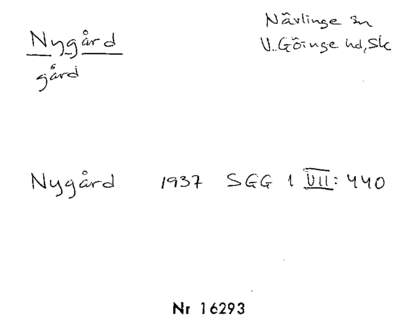 Nygård
Nävlinge sn
V. Göinge hd, Sk
gård
Nygård 1937 SGG 1 VII: 440
Nr 16293